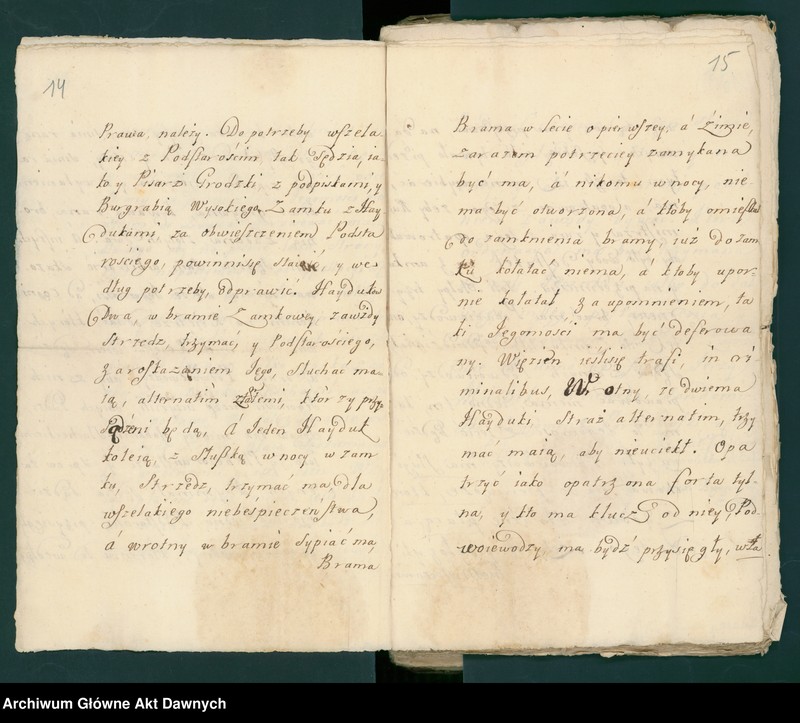 14
Prawa, należy. Do potrzeby wszela
kiey z Podstarościm tak Sędzia, ia
ko y Pisarz Grodzki, z podpiskami, y
Burgrabią Wysokiego Zamku z Hay
dukami, za obwieszczeniem Podsta
rościego, powinni się stawić, y we
dług potrzeby, odprawić. Hayduków
Dwa, w bramie Zamkowey, zawżdy
strzedz, trzymać, y Podstarościego,
z aroskazaniem Jego, słuchać ma
ią, alternatim z temi, którzy przy
będą, A Jeden Hayduk
koleią, z Służką w nocy w zam
ku, Strzedz, trzymać ma, dla
wszelakiego niebespieczeństwa,
á wrotny w bramie Sypiać ma,
Brama
15
Brama w lecie o pierwszey, á Zimie,
zarazem potrzeciey zamykana
być ma, á nikomu w nocy, nie
ma być otworzona, á ktoby omieszkał
do zamknienia bramy, iuż do zam
ku kołatać niema, á ktoby upor-
nie kołatał za upomnieniem, ta
ki Jegomości ma być deferowa
ny. Więzień ieślisię trafi, in cri
minalibus, Wrotny, ze dwiema
Hayduki straż alternatim, trzy
mać maią, aby nieuciekł. Opa
trzyć iako opatrzona forta tyl-
na, y kto ma klucz od niey Pod-
woiewodzy, ma bydź przysięgły, wła
Archiwum Główne Akt Dawnych